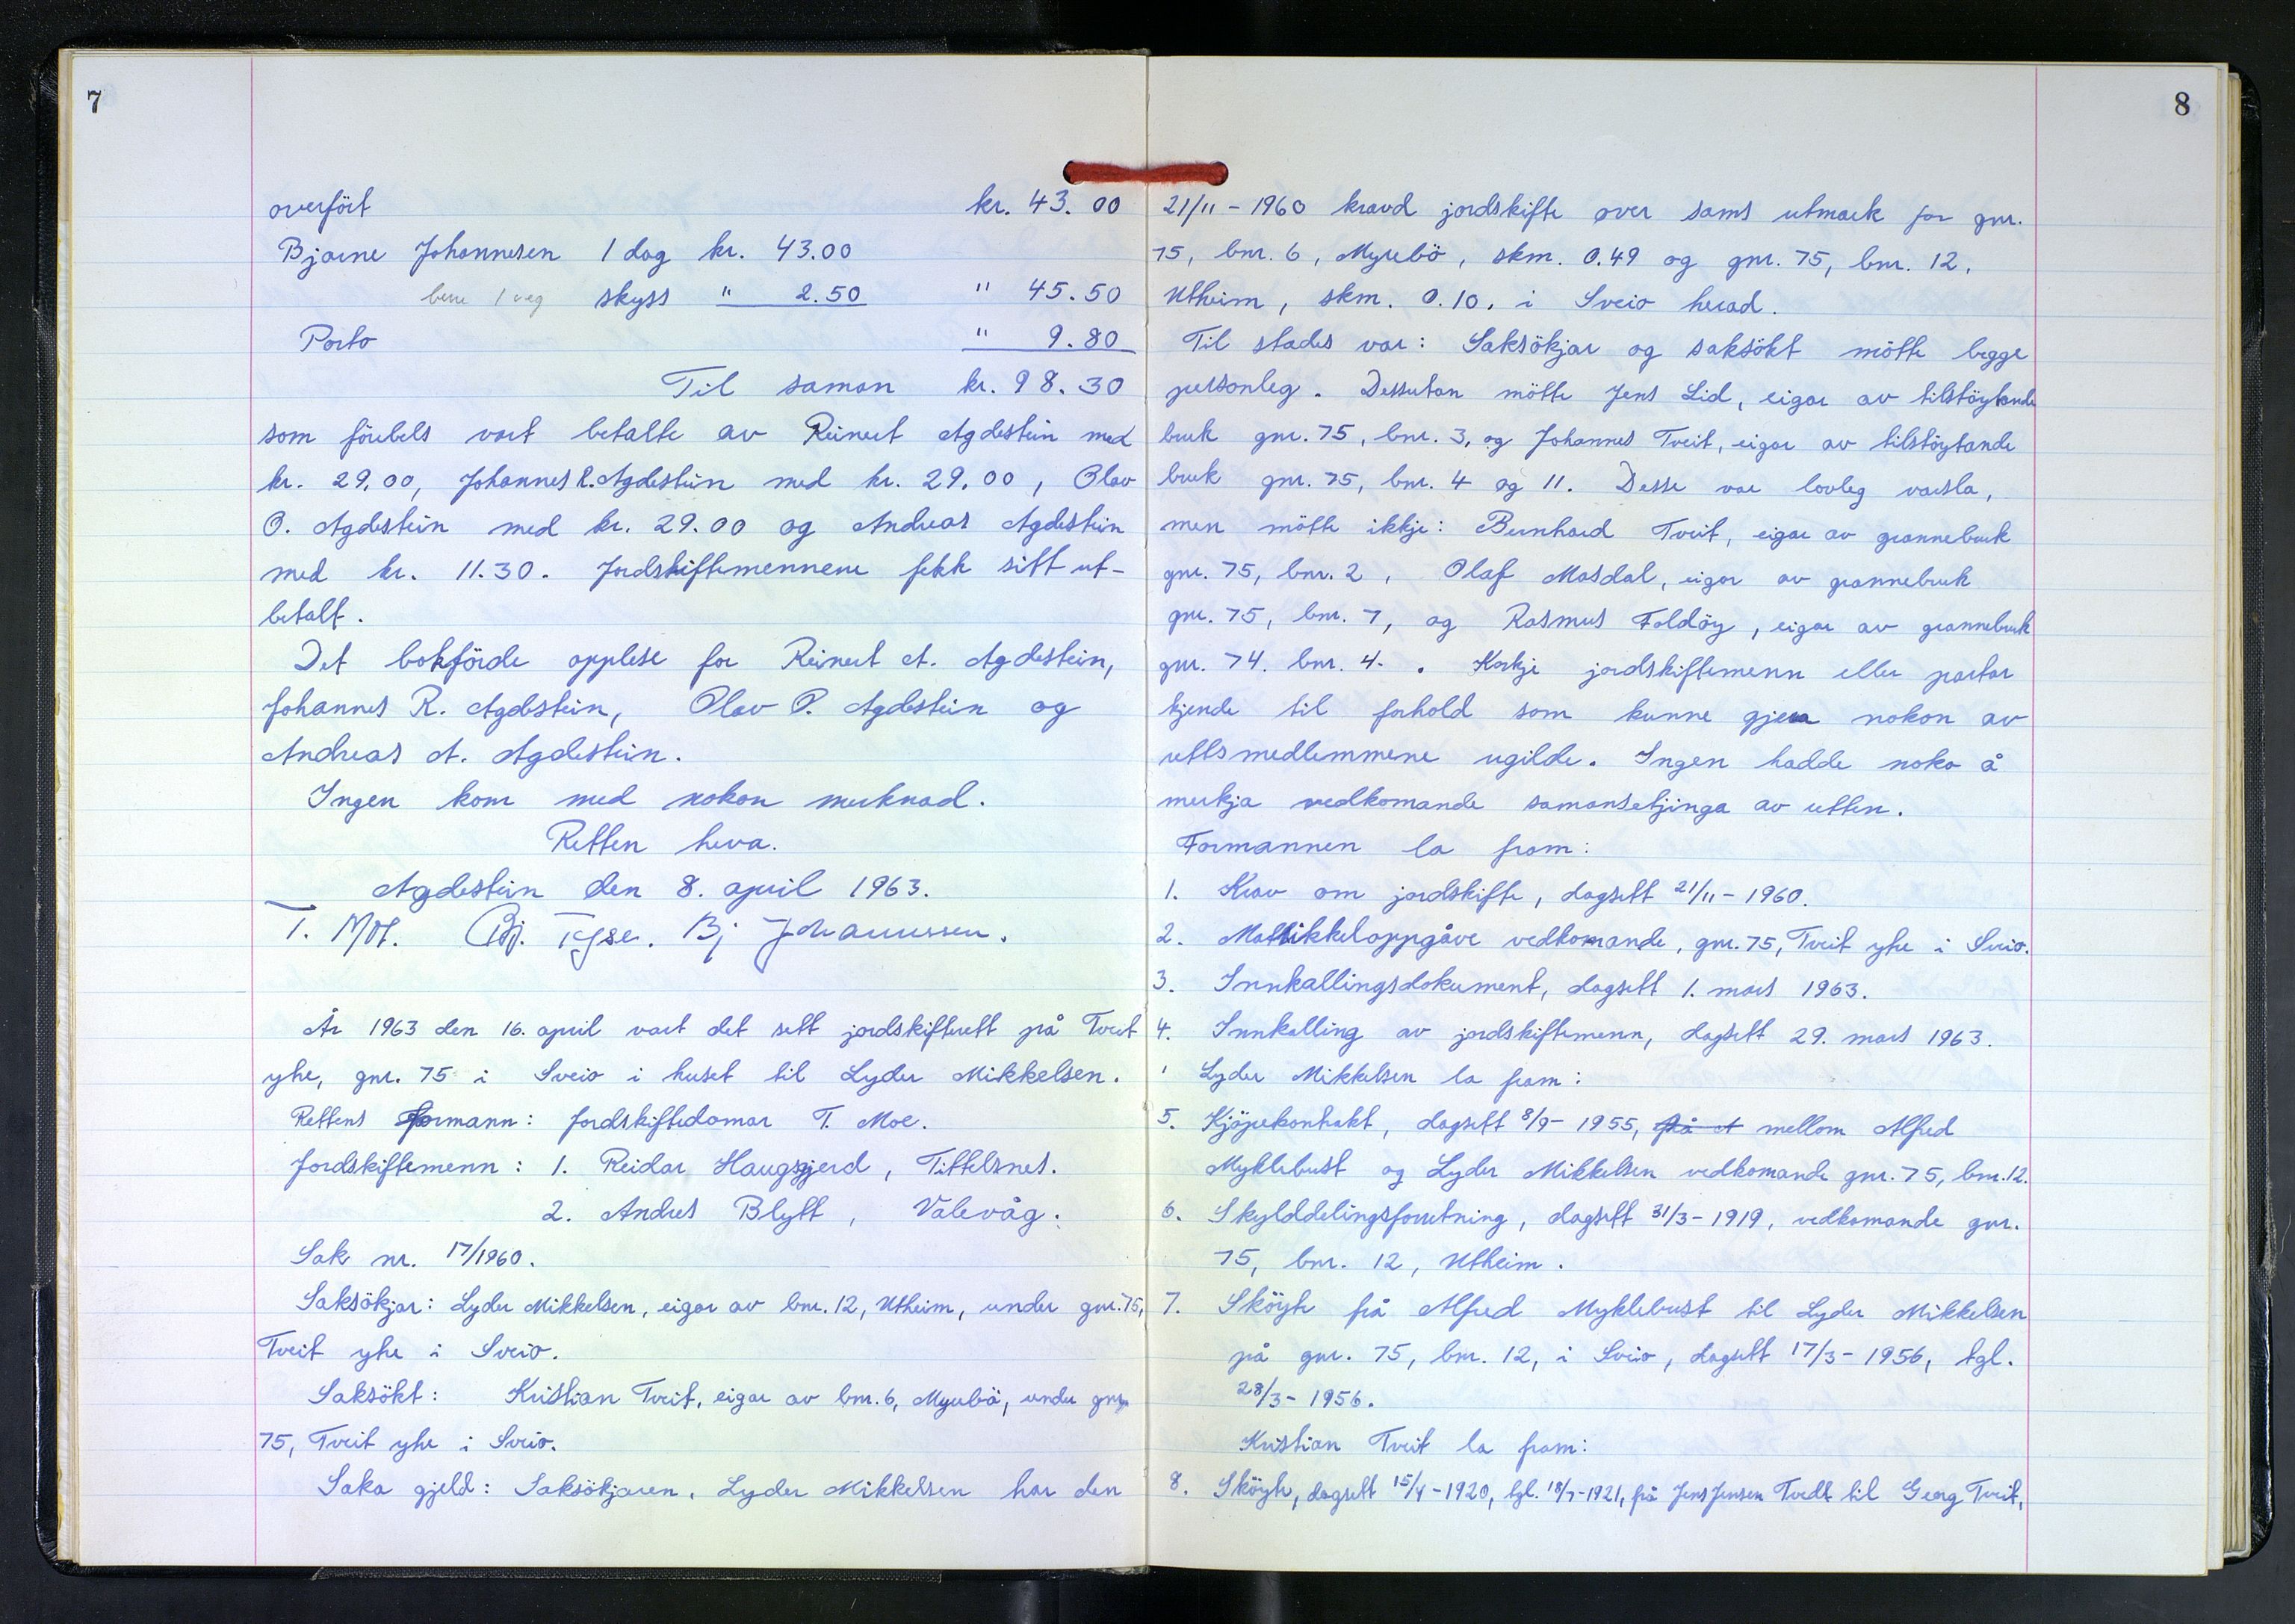 7
overført kr. 43.00
Bjarne Johannesen 1 dag kr. 43.00
bere 1 veg skyss " 2.50 " 45.50
Porto " 9.80
Til saman kr. 98.30
som förebels vart betalte av Reinert Agdestein med
kr. 29.00, Johannes R. Agdestein med kr. 29.00, Olav
O. Agdestein med kr. 29.00 og Andreas Agdestein
med kr. 11.30. Jordskiftemennene fekk sitt ut-
betalt.
Det bokförde opplese for Reinert A. Agdestein,
Johannes R. Agdestein, Olav O. Agdestein og
Andreas A. Agdestein.
Ingen kom med nokon merknad.
Retten heva.
Agdestein den 8. april 1963.
T. Moe. Bj. Tjse. Bj Johannessen.
År 1963 den 16. april vart det sett jordskifterett på Tveit
yhe, gnr. 75 i Sveio i huset til Lyder Mikkelsen.
Rettens formann: Jordskiftedomar T. Moe.
Jordskiftemenn: 1. Reidar Haugsgjerd, Tittelsnes.
2. Andres Blytt, Valevåg.
Sak nr. 17/1960.
Saksökjar: Lyder Mikkelsen, eigar av bnr. 12, Utheim, under gnr. 75,
Tveit yhe i Sveio.
Saksökt: Kristian Tveit, eigar av bnr. 6, Myrebö, under gnr.
75, Tveit yhe i Sveio.
Saka gjeld: Saksökjaren, Lyder Mikkelsen har den
8
21/11 - 1960 kravd jordskifte over sams utmark for gnr.
75, bnr. 6, Myrebö, skm. 0.49 og gnr. 75, bnr. 12,
Utheim, skm. 0.10. i Sveio herad.
Til stades var: Saksökjar og saksökt mötte begge
personleg. Dessutan mötte Jens Lid, eigar av tilstöytande
bruk gnr. 75, bnr. 3, og Johannes Tveit, eigar av tilstöytande
bruk gnr. 75, bnr. 4 og 11. Desse var lovleg varsla,
men mötte ikkje: Bernhard Tveit, eigar av grannebruk
gnr. 75, bnr. 2, Olaf Masdal, eigar av grannebruk
gnr. 75, bnr. 7, og Rasmus Foldöy, eigar av grannebruk
gnr. 74. bnr. 4. . Korkje jordskiftemenn eller partar
kjende til forhold som kunne gjera nokon av
rettsmedlemmene ugilde. Ingen hadde noko å
merkja vedkomande samansetjinga av retten.
Formannen la fram:
1. Krav om jordskifte, dagsett 21/11 - 1960.
2. Matrikkeloppgåve vedkomande, gnr. 75, Tveit yhe i Sveio.
3. Innkallingsdokument, dagsett 1. mars 1963.
4. Innkalling av jordskiftemenn, dagsett 29. mars 1963.
Lyder Mikkelsen la fram:
5. Kjöpekontrakt, dagsett 8/9 - 1955, frå A mellom Alfred
Myklebust og Lyder Mikkelsen vedkomande gnr. 75, bnr. 12.
6. Skylddelingsforretning, dagsett 31/3 - 1919, vedkomande gnr.
75, bnr. 12, Utheim.
7. Sköyte frå Alfred Myklebust til Lyder Mikkelsen
på gnr. 75, bnr. 12, i Sveio, dagsett 17/3 - 1956, tgl.
28/3 - 1956.
Kristian Tveit la fram:
8. Sköyte, dagsett 15/4 - 1920, tgl. 18/7 - 1921, frå Jens Jensen Tvedt til Georg Tveit,